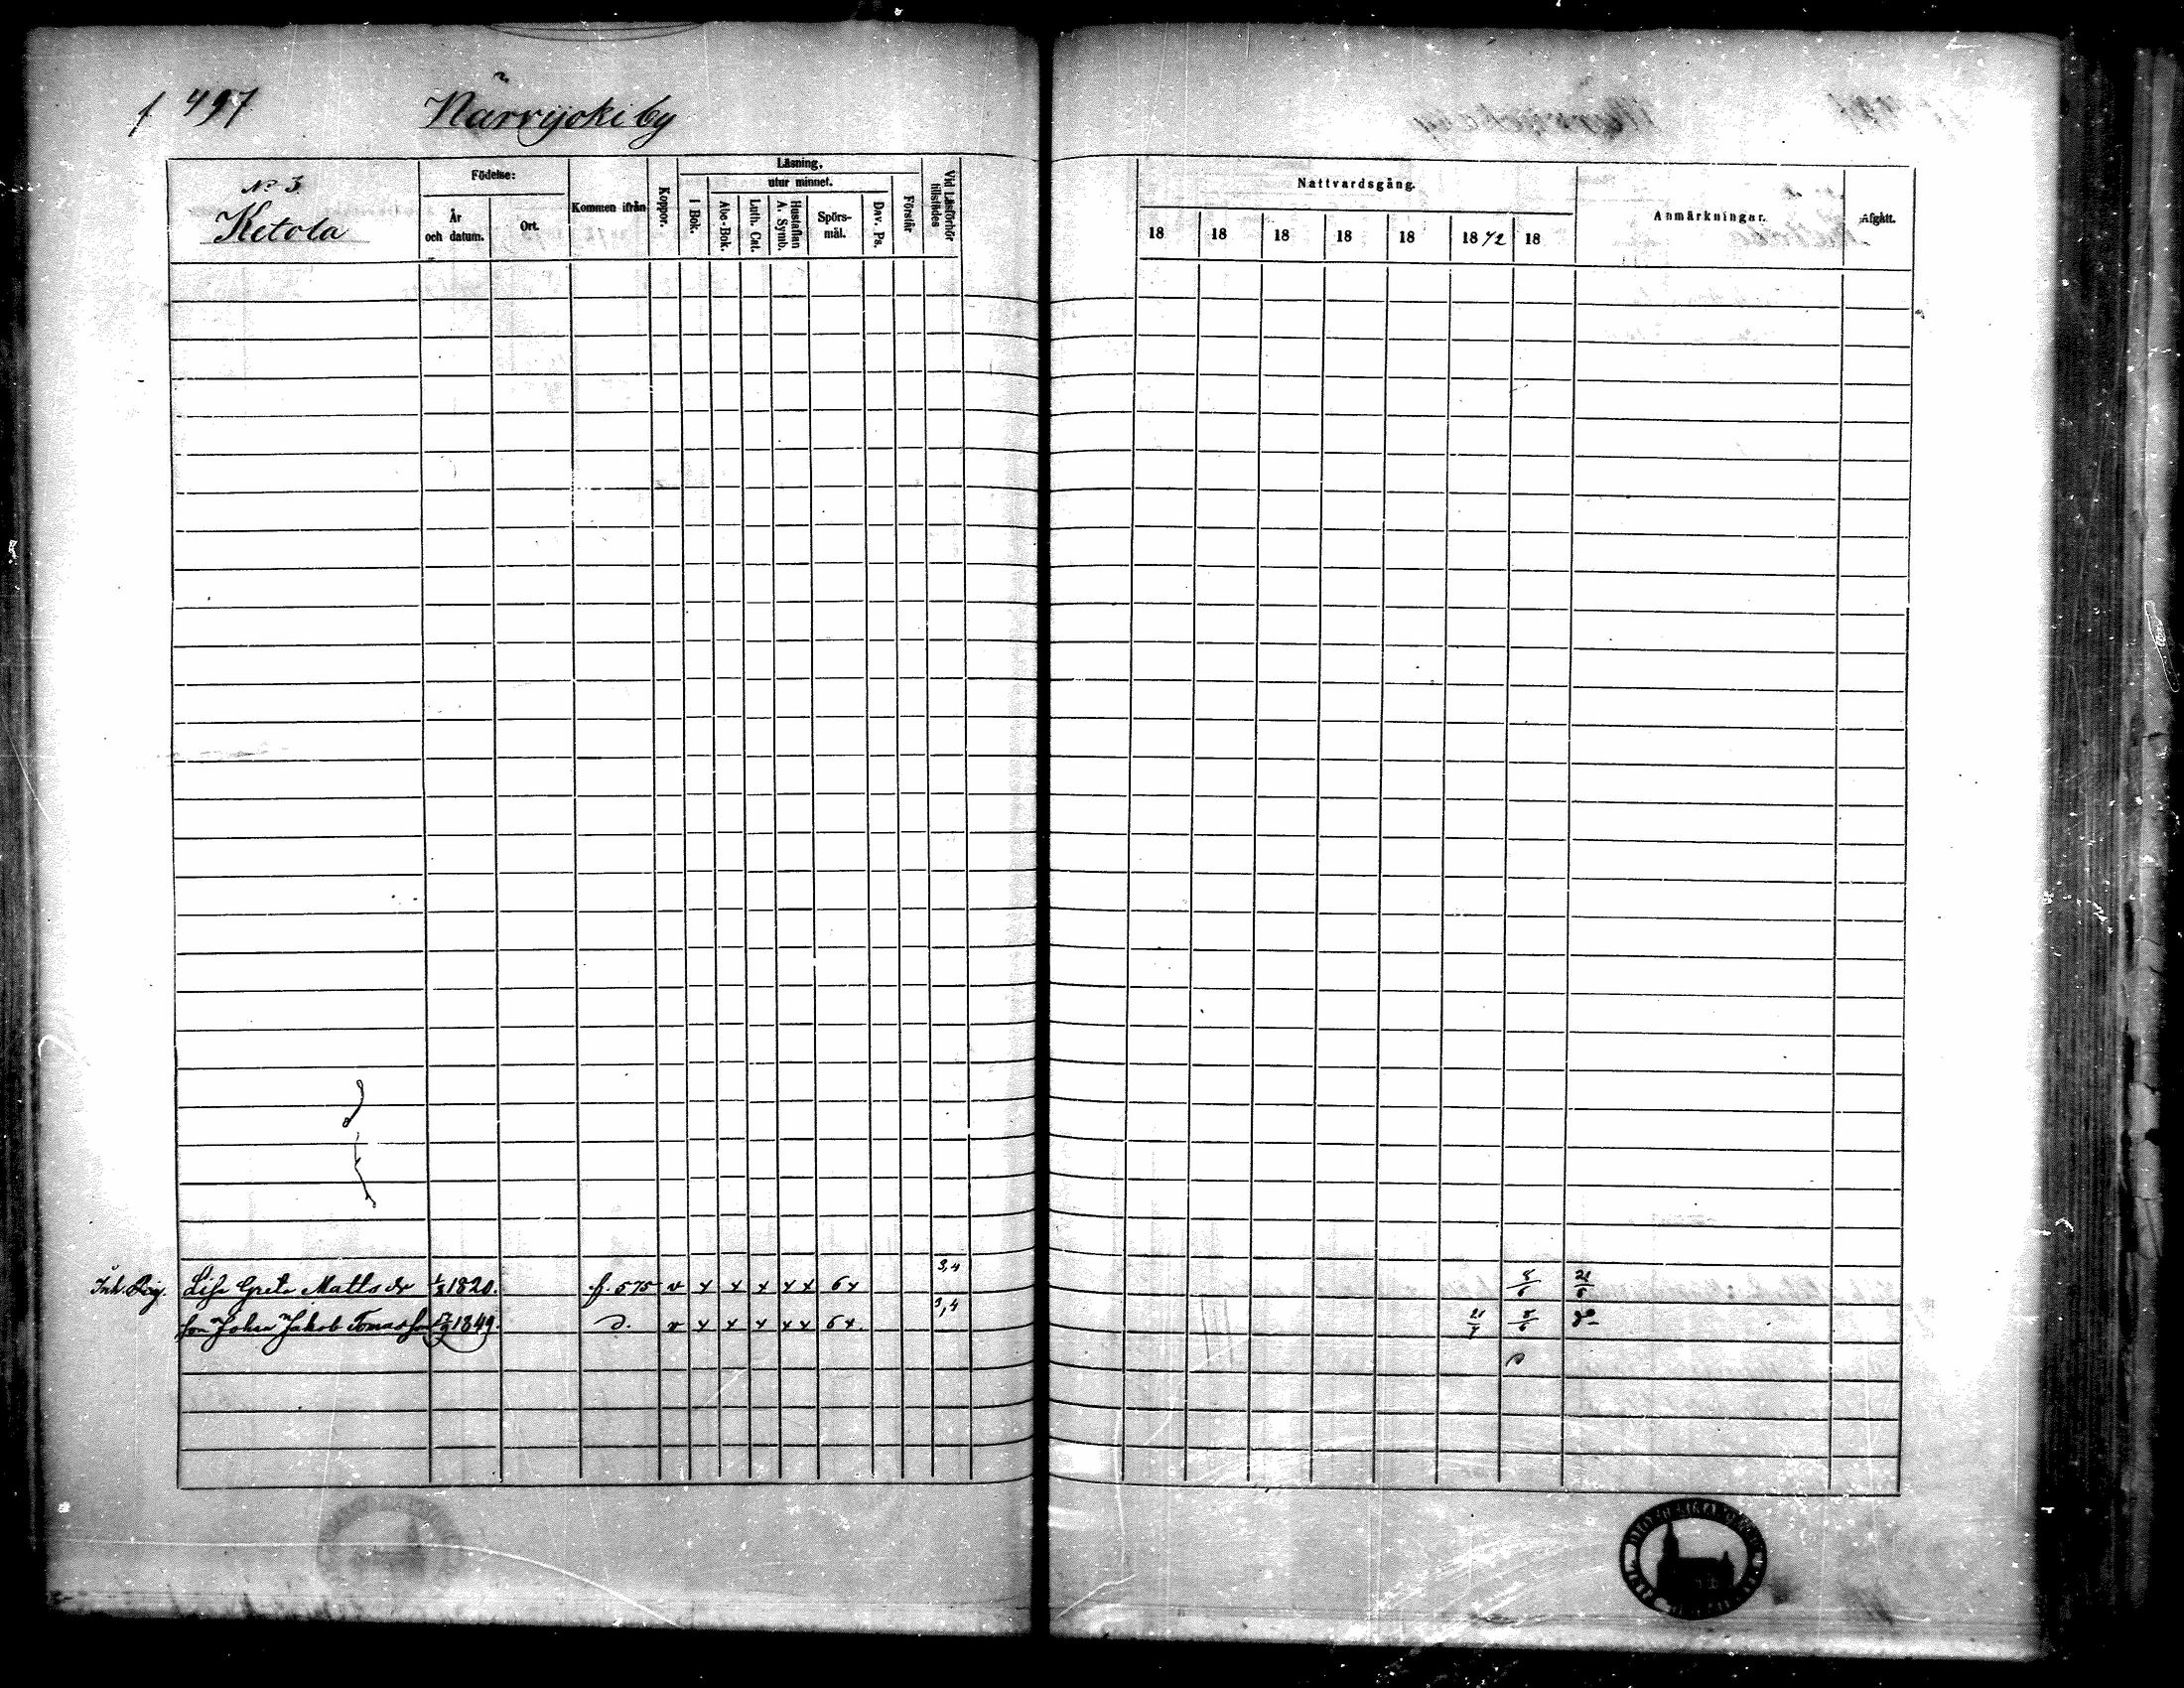 f 497 Närvijoki by
No 3.
Ketola
Födelse:
År och datum.
Ort.
Kommen ifrån
Koppor.
Läsning.
utur minnet.
I Bok.
Abc-Bok.
Luth. Cat.
Hustaflan A. Symb.
Spörs-mål.
Dav. Ps.
Förstår
Vid Läsförhör tillstädes
Nattvardsgång.
18 18 18 18 18 18 72 18
Anmärkningar.
Afgått.
3,4
Inh. Pig. Lisa Greta Matts dr 1820. f. 575 v x x x x x 6 x 8/6 21/6
3,4
son Johan Jakob Tomasson 1849. D. v x x x x x 6 x. 21/7 8/6 do